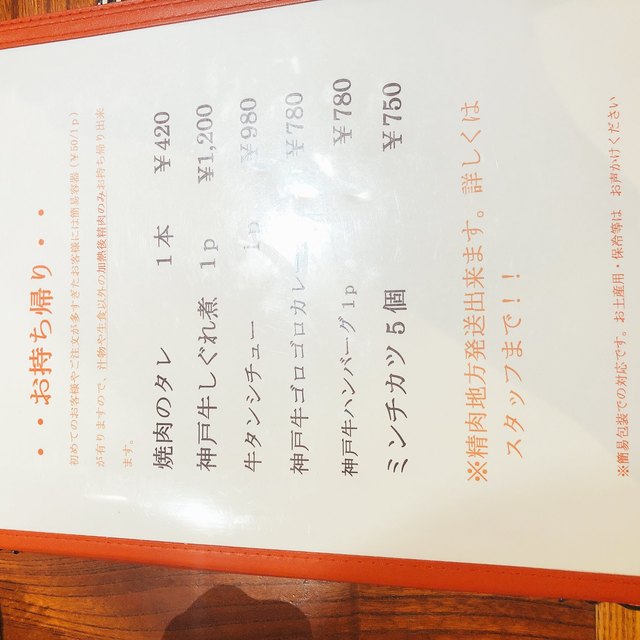 ・・お持ち帰り・・
初めてのお客様やご注文が多すぎたお客様には簡易容器(￥50/1p)
が有りますので、汁物や生食以外の加熱後精肉のみお持ち帰り出来
ます。
焼肉のタレ 1本 ￥420
神戸牛しぐれ煮 1p ￥1,200
牛タンシチュー 1p ￥980
神戸牛ゴロゴロカレー ￥780
神戸牛ハンバーグ1p ￥780
ミンチカツ5個 ￥750
※精肉地方発送出来ます。詳しくは
スタッフまで！！
※簡易包装での対応です。お土産用・保冷等は お声かけください